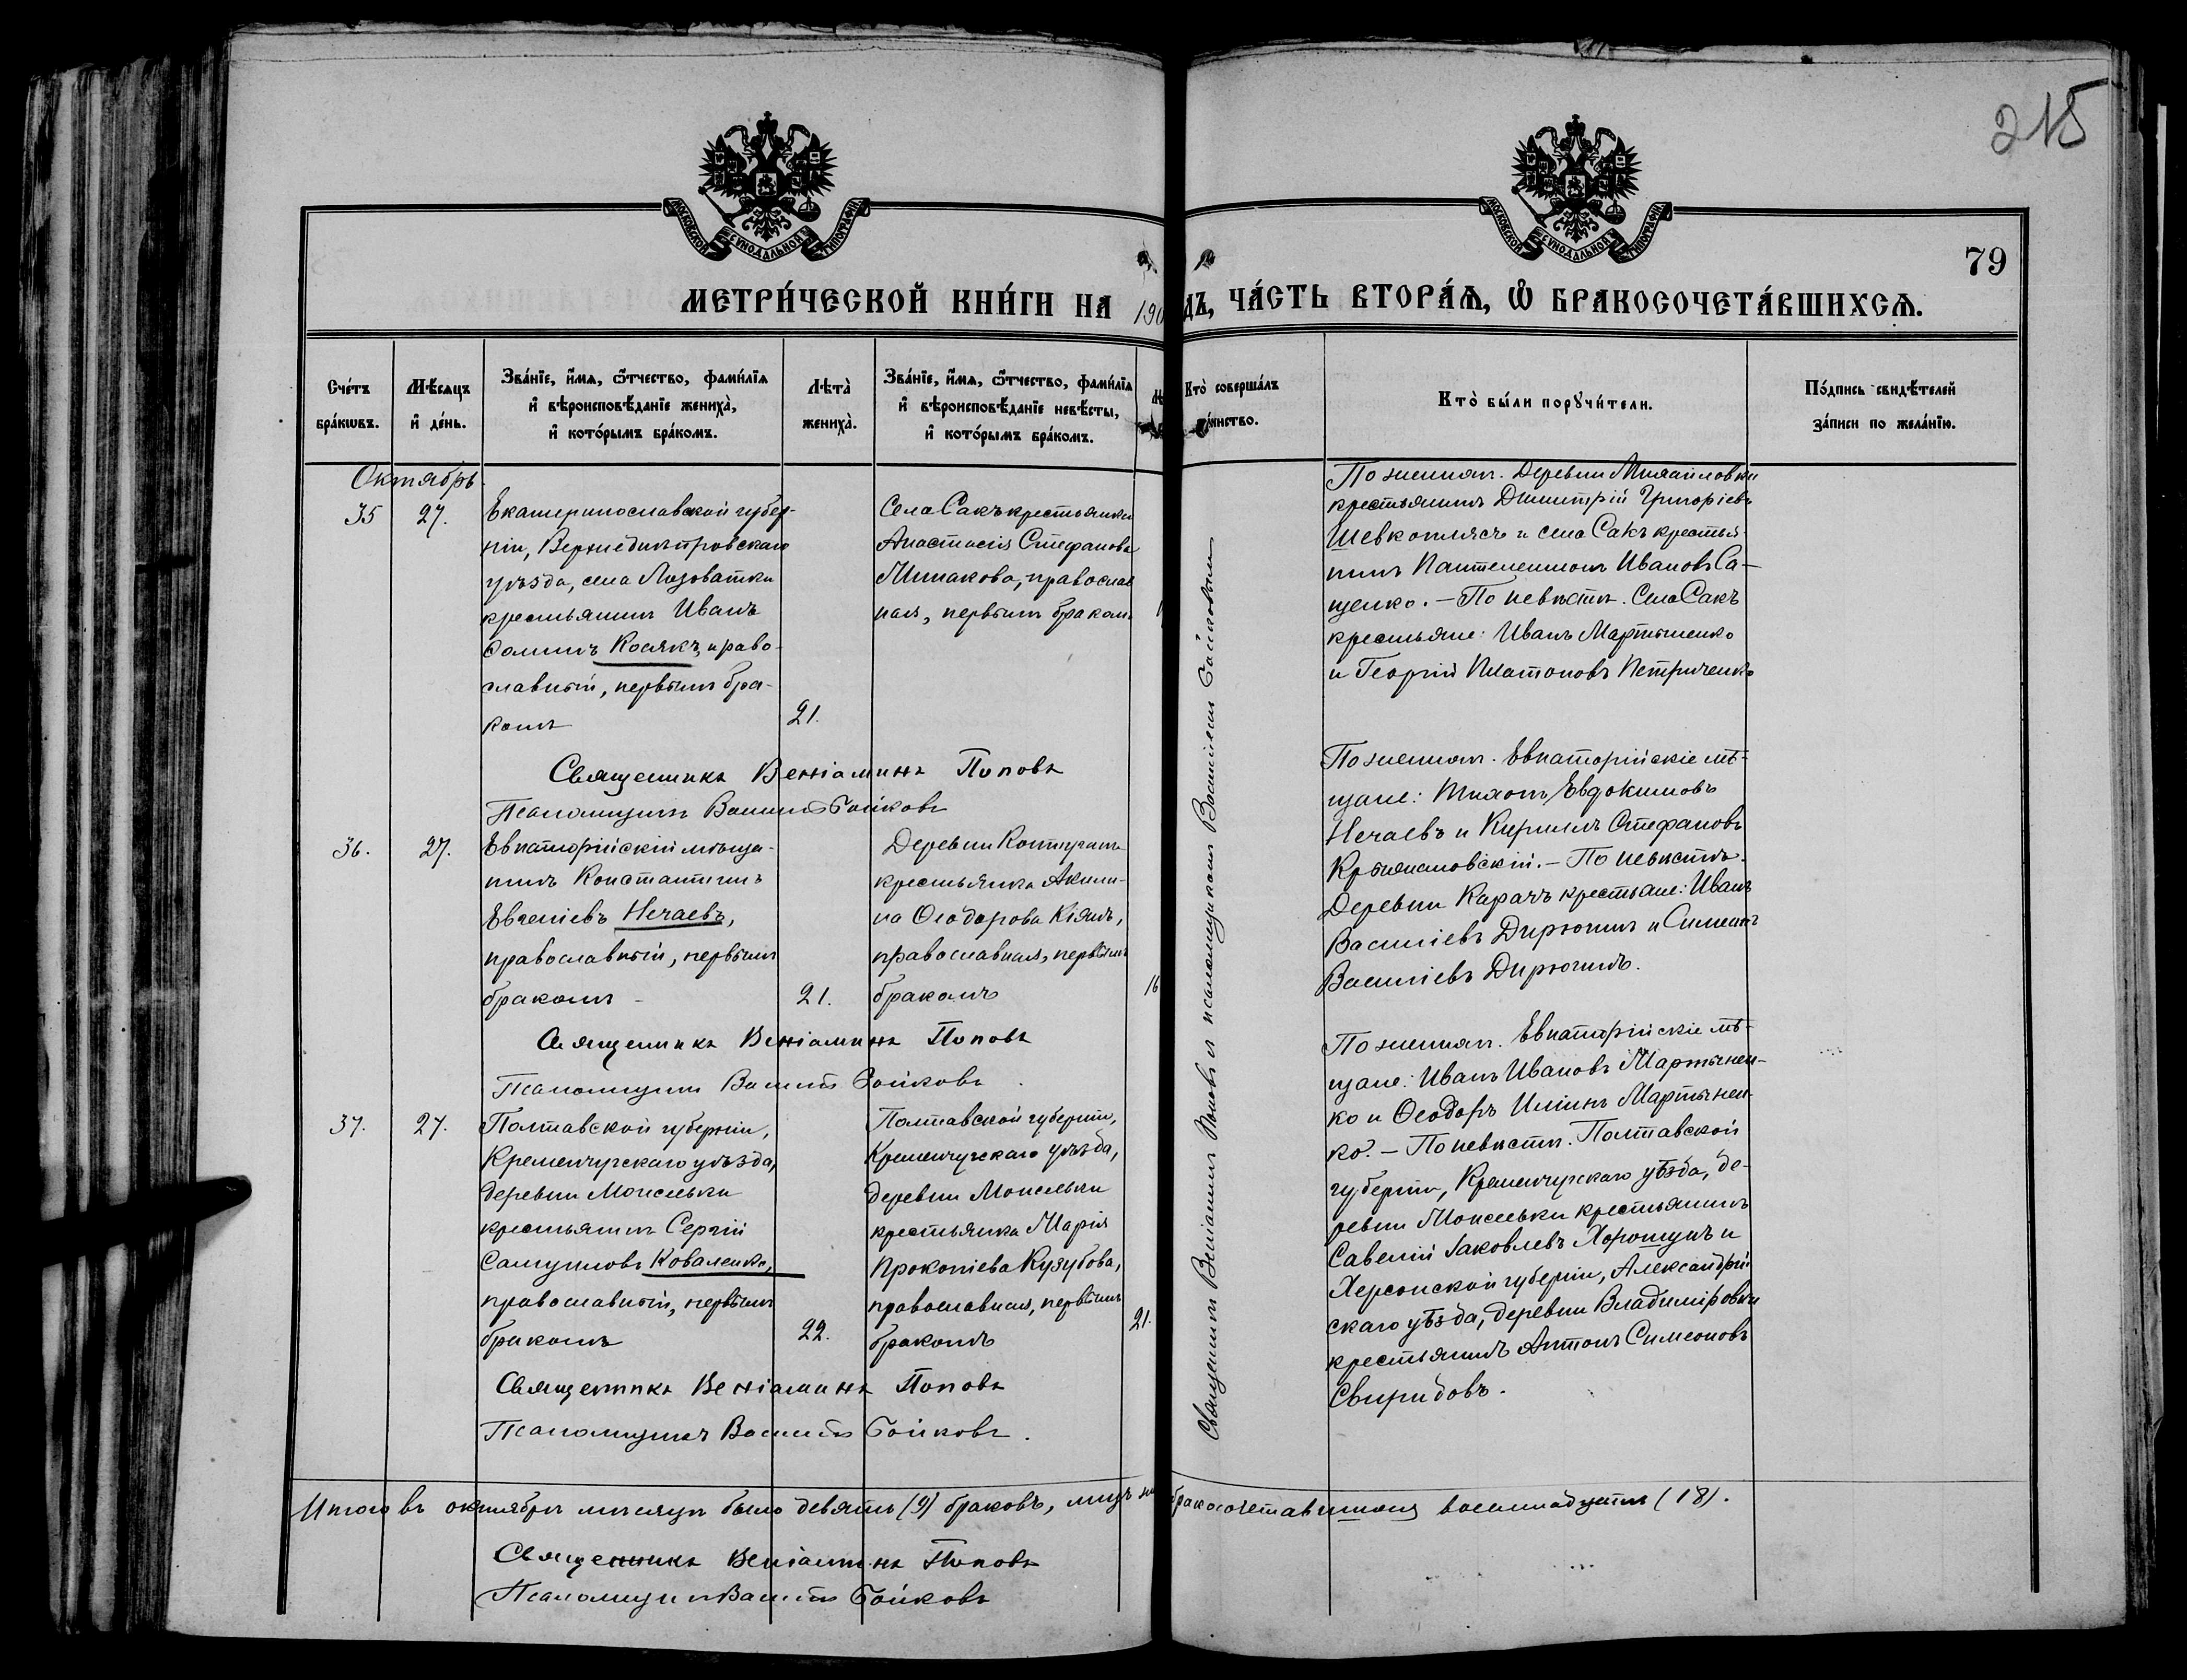 215
МОСКОВСКОЙ СѴНОДАЛЬНОЙ ТИПОГРАФІИ
МОСКОВСКОЙ СѴНОДАЛЬНОЙ ТИПОГРАФІИ
79
МЕТРИ́ЧЕСКОЙ КНИ́ГИ НА 190
ДЪ, ЧА́СТЬ ВТОРА́Ѧ, Ѽ БРАКОСОЧЕТА́ВШИХСѦ.
Сче́тъ бра́кѡвъ.
Мѣ́сѧцъ и҆ де́нь.
Зва́нїе, и҆́мѧ, ѻ҆́тчество, фами́лїѧ и҆ вѣроисповѣ́данїе жениха̀, и҆ кото́рымъ бра́комъ.
Лѣта̀ жениха̀.
Зва́нїе, и҆́мѧ, ѻ҆́тчество, фами́лїѧ и҆ вѣроисповѣ́данїе невѣ́сты, и҆ кото́рымъ бра́комъ.
Кто̀ соверша́лъ та́инство.
Кто̀ бы́ли порꙋчи́тели.
По́дпись свидѣ́телей за́писи по жела́нїю.
Октябрь.
35
27.
Екатеринославской губер-
ніи, Верхнеднѣпровскаго
уѣзда, села Лозоватки
крестьянинъ Иванъ
Косякъ, право-
славный, первымъ бра-
комъ
21.
Села Сакъ крестьянка
Анастасія Стефанова
Минакова, православ
ная, первымъ бракомъ
По женихѣ. Деревни Михайловки
крестьянинъ Димитрій Григоріевъ
Шевкоплясъ и села Сакъ крестья-
нинъ Пантелеимонъ Ивановъ Са-
щенко. — По невѣстѣ. Села Сакъ
крестьяне: Иванъ Мартыненко
и Георгій Платоновъ Петриченко
Священникъ Веніаминъ Поповъ
Псаломщикъ Василій Бойковъ
36.
27.
Евпаторійскій мѣща-
нинъ Константинъ
Евгеніевъ Нечаевъ,
православный, первымъ
бракомъ
21.
Деревни Контуганъ
крестьянка Акили-
на Ѳеодорова Кіянъ,
православная, первымъ
бракомъ
16
По женихѣ. Евпаторійскіе мѣ-
щане: Тихонъ Евдокимовъ
Нечаевъ и Кириллъ Стефановъ
По невѣстѣ.
Деревни Карачъ крестьяне: Иванъ
Василіевъ Дирюгинъ и Симеонъ
Василіевъ Дирюгинъ.
Священникъ Веніаминъ Поповъ
Псаломщикъ Василій Бойковъ.
37.
27.
Полтавской губерніи,
Кременчугскаго уѣзда,
деревни Моисеевки
крестьянинъ Сергій
Самуиловъ Коваленко,
православный, первымъ
бракомъ
22.
Полтавской губерніи,
Кременчугскаго уѣзда,
деревни Моисеевки
крестьянка Марія
Прокопіева Кузубова,
православная, первымъ
бракомъ
21.
По женихѣ. Евпаторійскіе мѣ-
щане: Иванъ Ивановъ Мартынен-
ко и Ѳеодоръ Иліинъ Мартынен-
ко. — По невѣстѣ. Полтавской
губерніи, Кременчугскаго уѣзда, де-
ревни Моисеевки крестьянинъ
Савелій Іаковлевъ Хорошунъ и
Херсонской губерніи, Александрій-
скаго уѣзда, деревни Владиміровки
крестьянинъ Антонъ Симеоновъ
Свиридовъ.
Священникъ Веніаминъ Поповъ
Псаломщикъ Василій Бойковъ.
Священникъ Веніаминъ Поповъ и псаломщикъ Василій Бойковъ
Итого въ октябрѣ мѣсяцѣ было девять (9) браковъ, лицъ бракосочетавшихся восемнадцать (18).
Священникъ Веніаминъ Поповъ
Псаломщикъ Василій Бойковъ